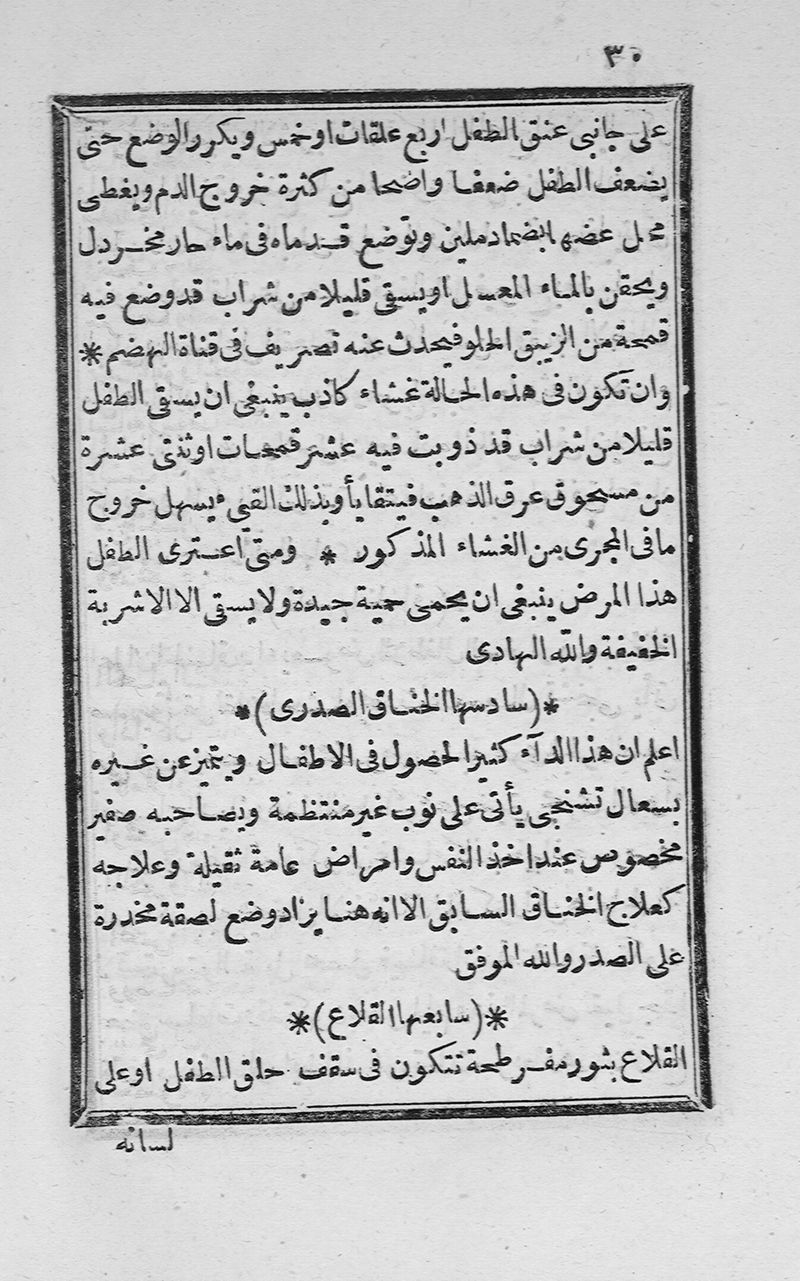 ٣٠
على جانبى عنق الطفل اربع علقات اوخمس ويكرر الوضع حتى
يضعف الطفل ضعفا واضحا من كثرة خروج الدم ويغطى
محل عضها بضماد ملين وتوضع قدماه فى ماء حار مخردل
ويحقن بالماء المعسل اويسقى قليلا من شراب قد وضع فيه
قمحة من الزيبق الحلو فيحدث عنه تصريف فى قناة الهضم *
وان تكون فى هذه الحالة غشاء كاذب ينبغى ان يسقى الطفل
قليلا من شراب قد ذوبت فيه عشر قمحات اوثنتى عشرة
من مسحوق عرق الذهب فيتقايأ وبذلك القىء يسهل خروج
ما فى المجرى من الغشاء المذكور * ومتى اعترى الطفل
هذا المرض ينبغى ان يحمى حمية جيدة ولا يسقى الا الاشربة
الخفيفة والله الهادى
*(سادسها الخناق الصدرى)*
اعلم ان هذا الدآء كثير الحصول فى الاطفال ويتميز عن غيره
بسعال تشنجى يأتى على نوب غير منتظمة ويصاحبه صفير
مخصوص عند اخذ النفس وامراض عامة ثقيلة وعلاجه
كعلاج الخناق السابق الا انه هنا يزاد وضع لصقة مخدرة
على الصدر والله الموفق
*(سابعها القلاع)*
القلاع بثور مفرطحة تتكون فى سقف حلق الطفل اوعلى
لسانه